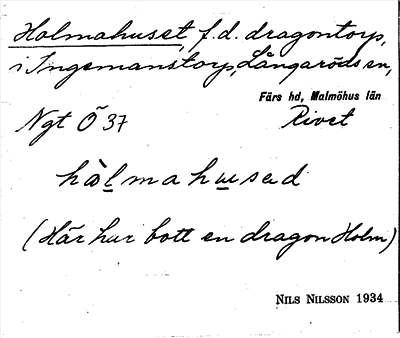 Holmahuset, f.d. dragontorp,
i Ingemanstorp, Långaröds sn,
Färs hd, Malmöhus län
Ngt Ö 37 Rivet
hòl̲mahu̲sad
(Här har bott en dragon Holm)
NILS NILSSON 1934